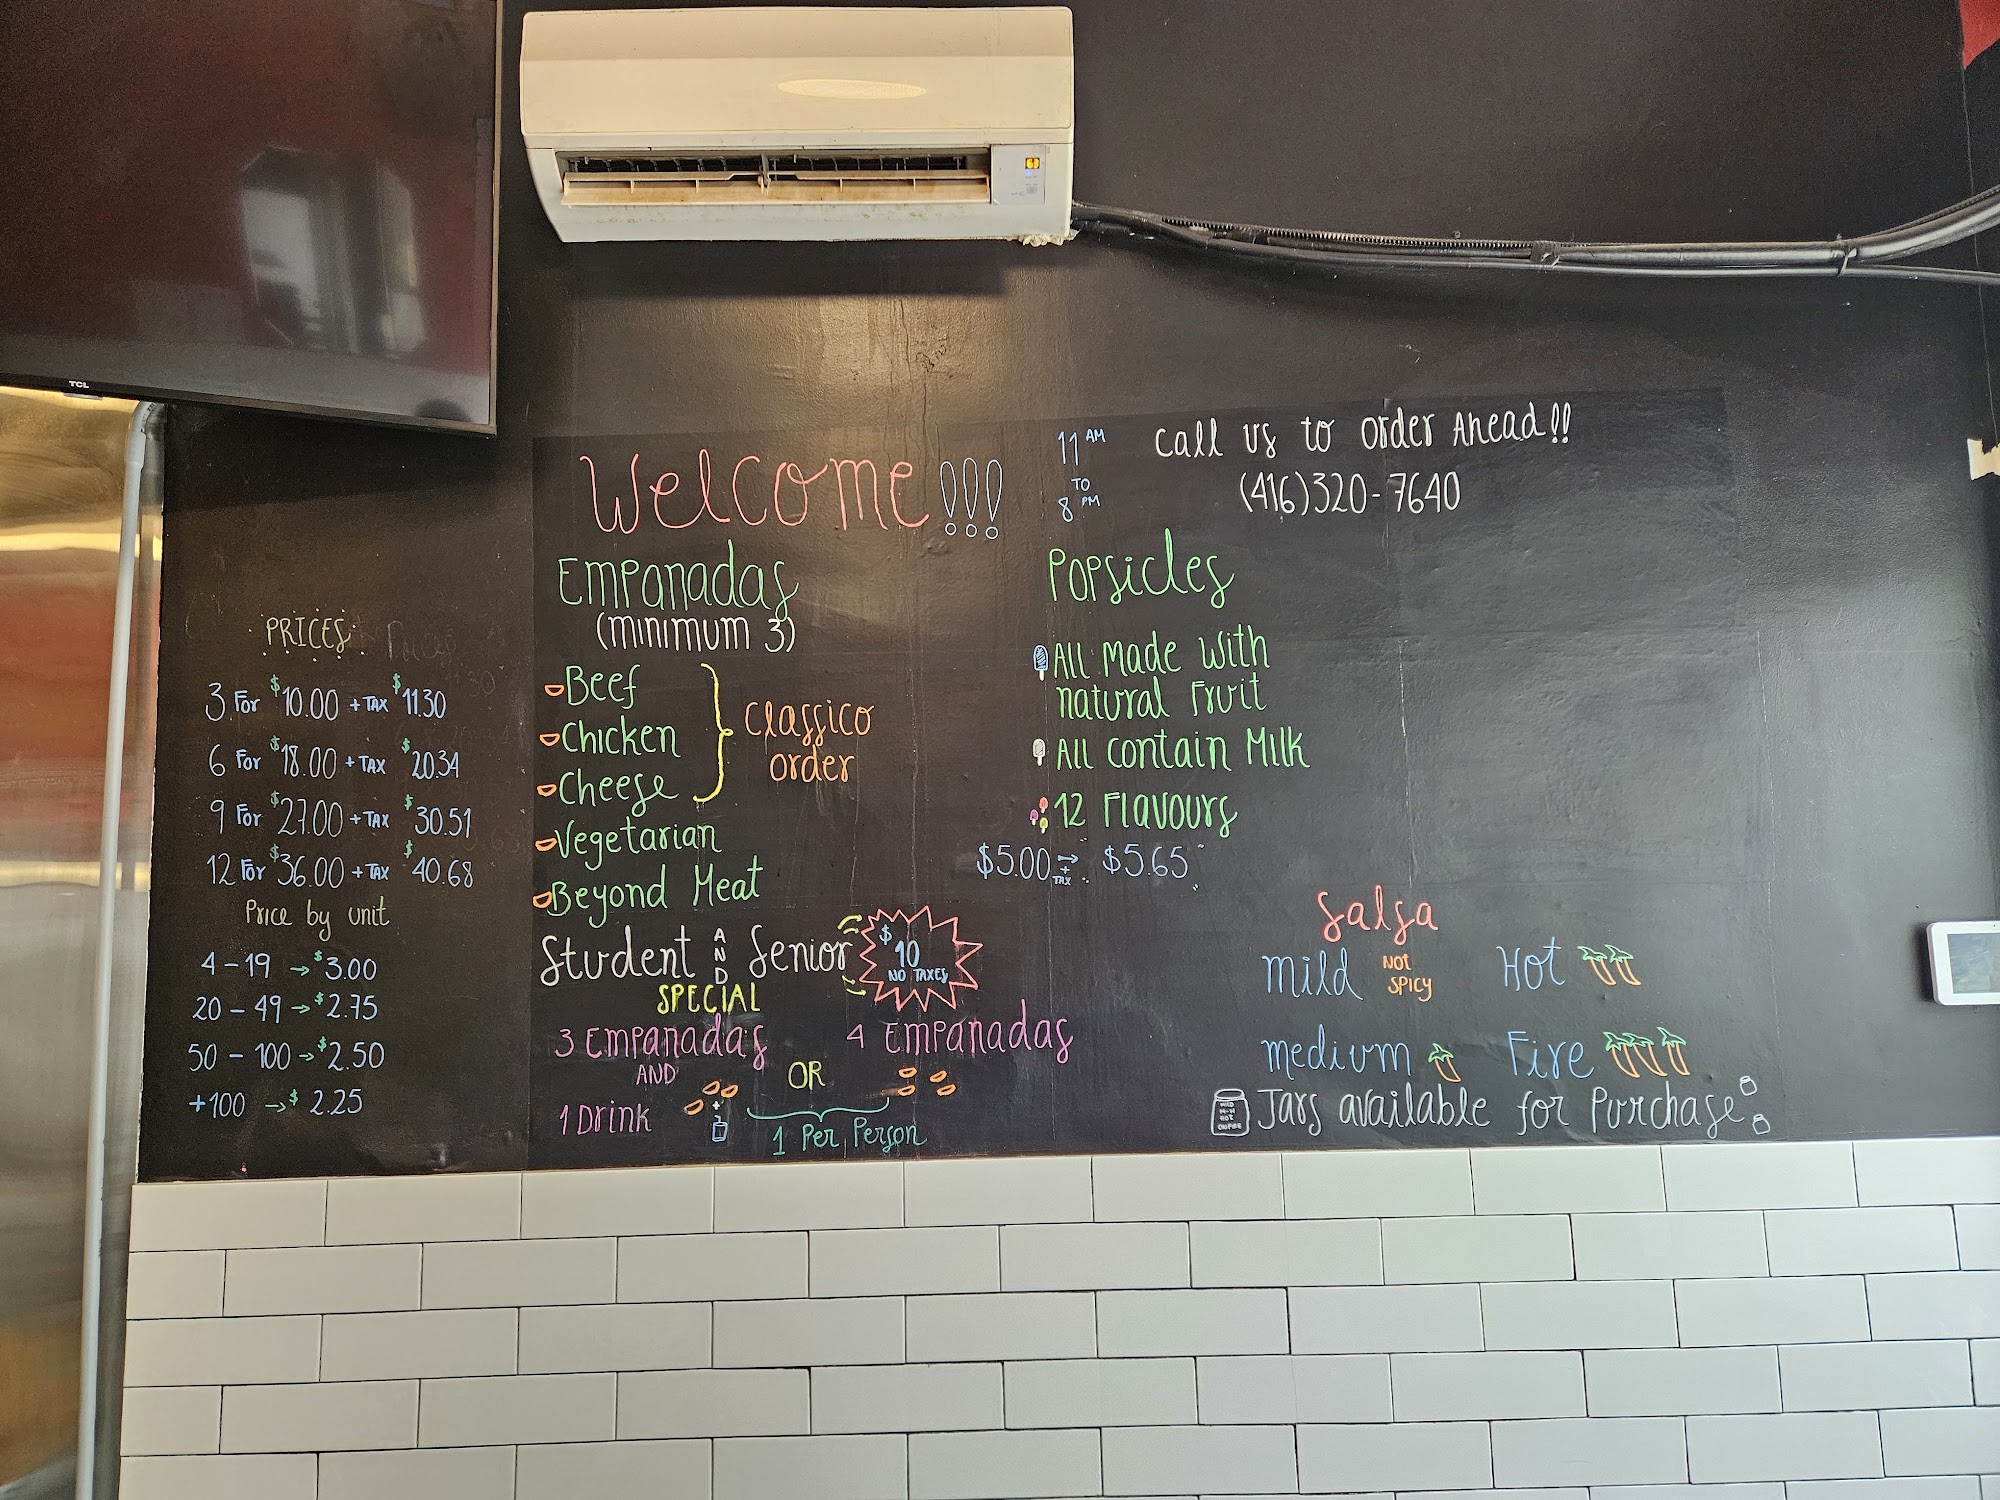 TCL
PRICES
3 For $10.00 + TAX $11.30
6 For $18.00 + TAX $20.34
9 For $27.00 + TAX $30.51
12 For $36.00 + TAX $40.68
Price by unit
4 - 19 → $3.00
20 - 49 → $2.75
50 - 100 → $2.50
+100 → $2.25
Welcome!!!
Empanadas
(minimum 3)
Beef
Chicken
Cheese
Classico
order
Vegetarian
Beyond Meat
Student AND Senior
SPECIAL
$10
NO TAXES
3 Empanadas
AND
1 Drink
OR
4 Empanadas
1 Per Person
11 AM
TO
8 PM
Call us to order Ahead!!
(416)320-7640
Popsicles
All Made with
natural Fruit
All contain Milk
12 Flavours
$5.00 + TAX → $5.65
Salsa
Mild NOT SPICY
Hot
medium
Fire
Jars available for Purchase